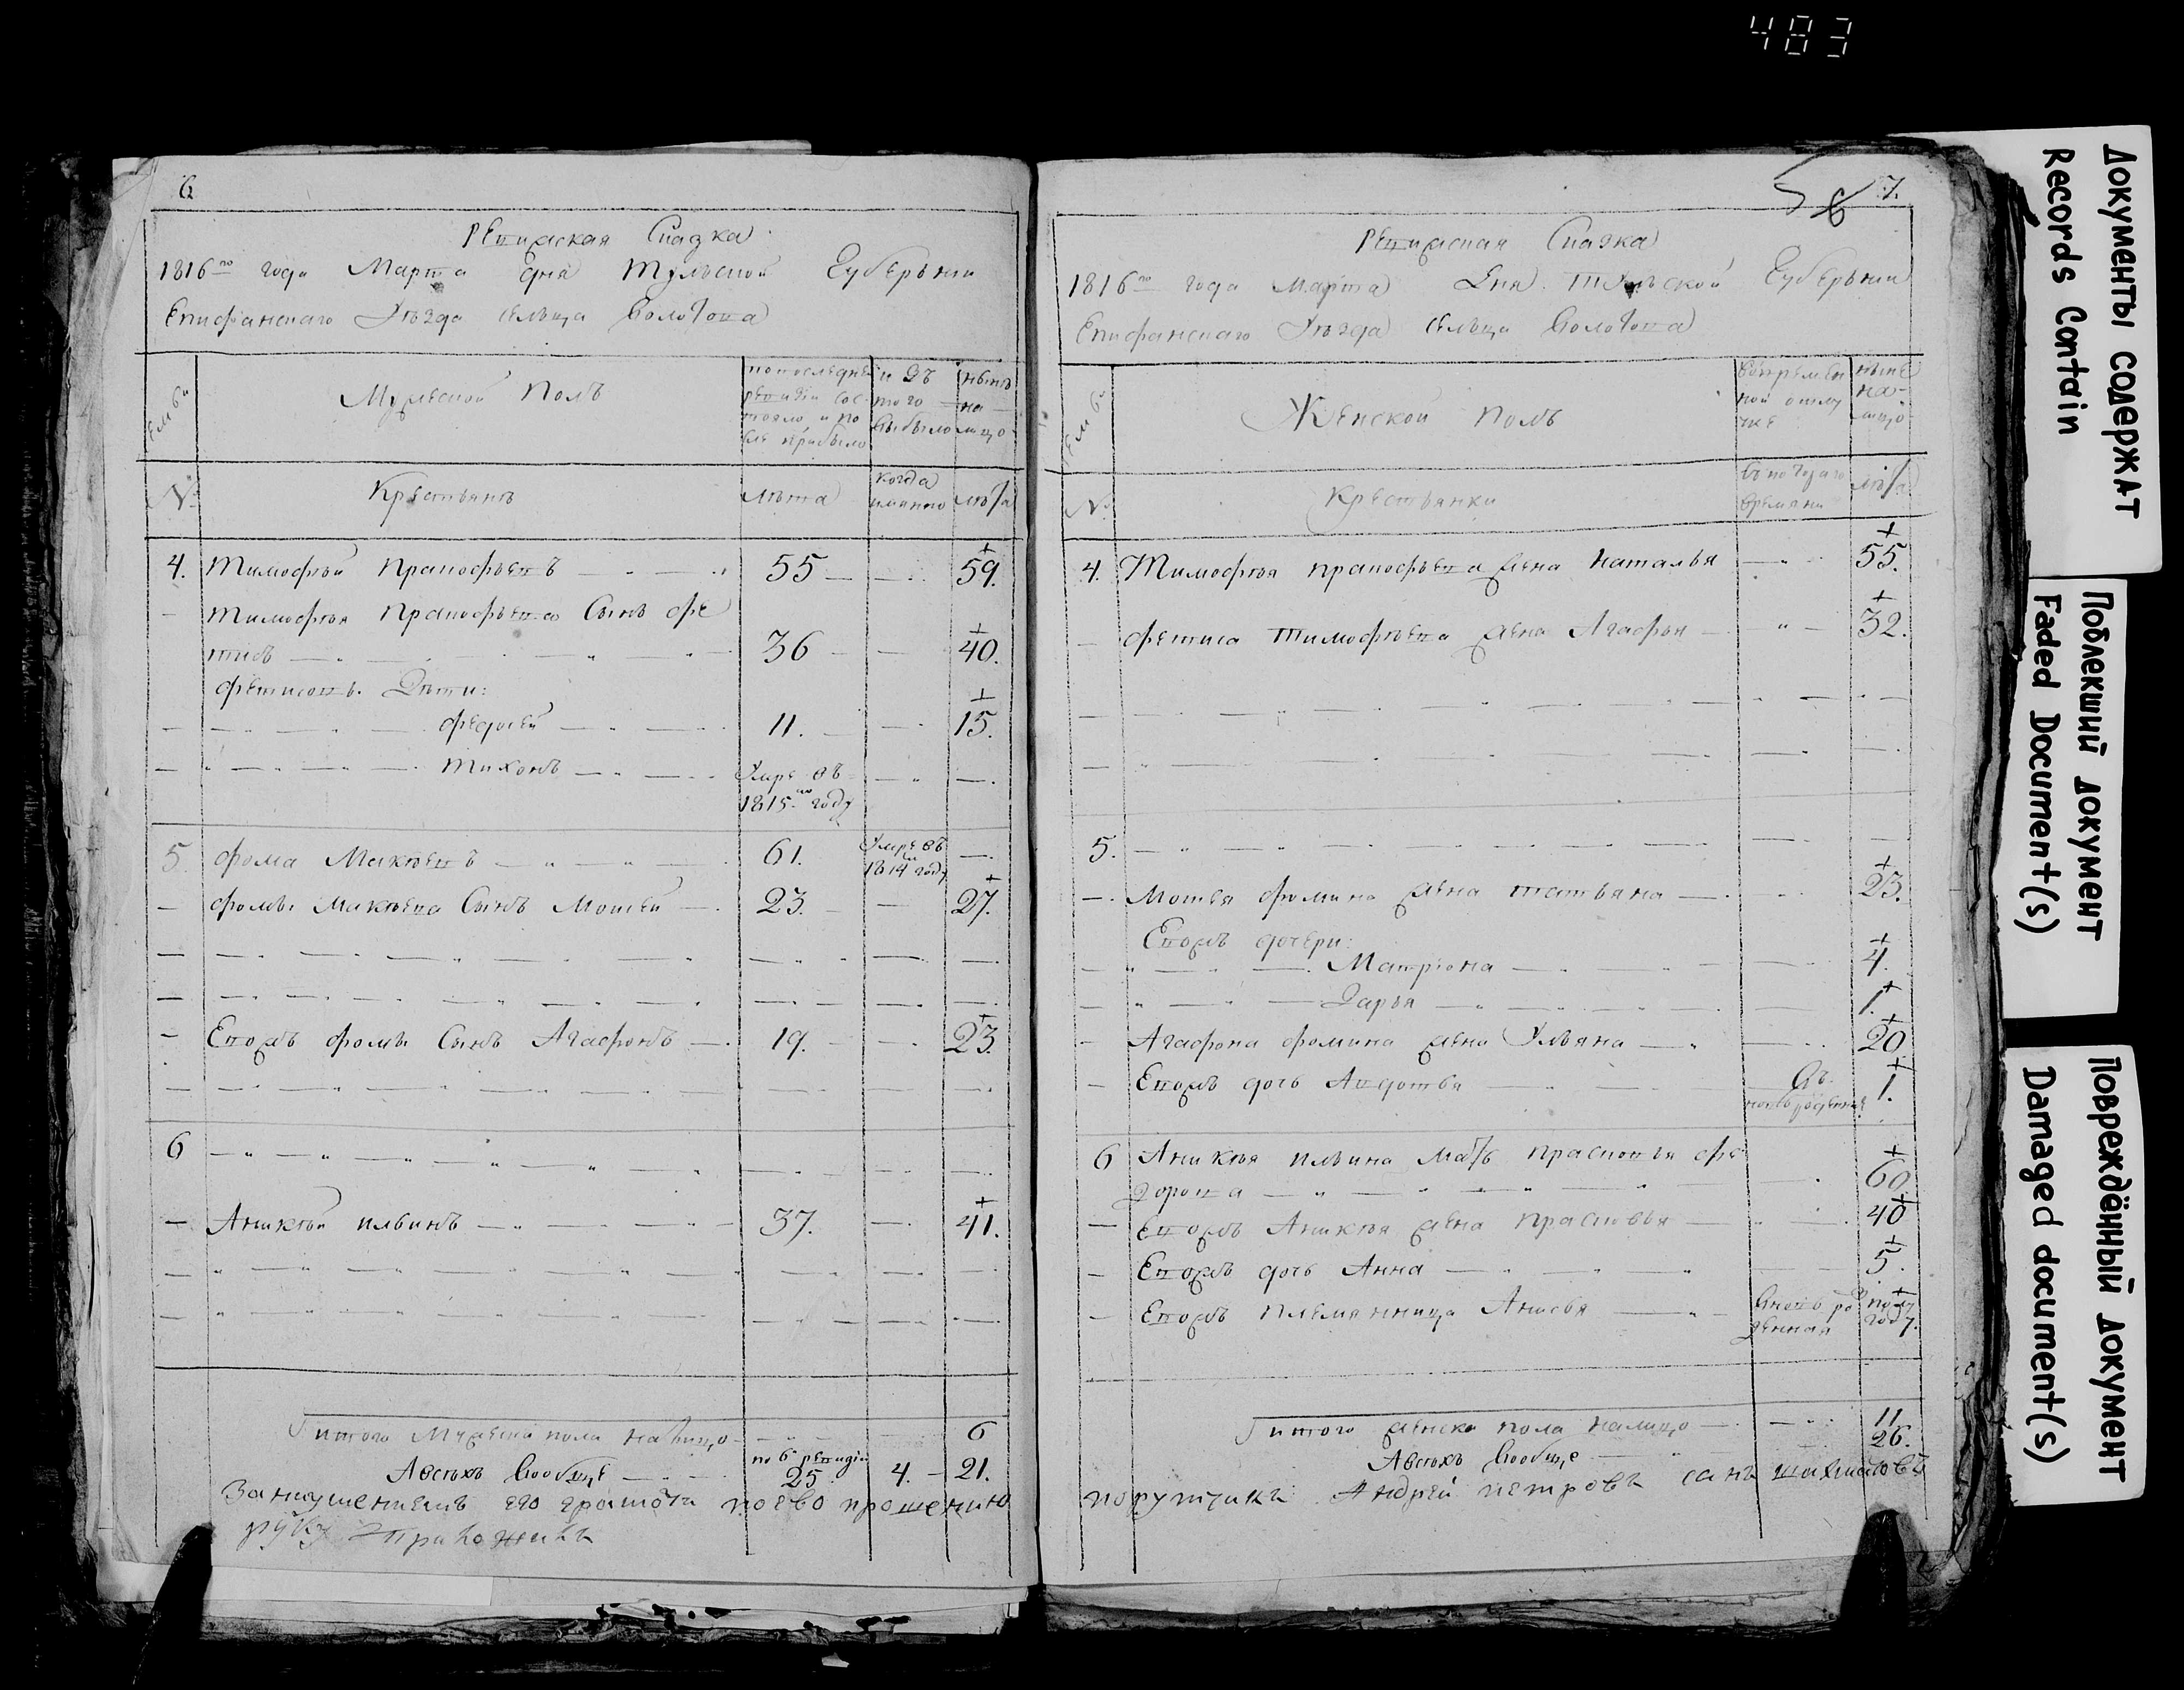 483
6
Ревижская Сказка
1816го года Марта дня Тульской Губерънии
Епифанскаго Уъзда Сельца Болотова
Семьи
Мужеской Полъ
по последней
ревизiи сос-
тояло, и по
сле прибыло
изъ
того
выбыло
нынъ
на
лицо
№
Крестьянъ
лъта
когда
имянно
лъта
4. Тимофъй Пракофьевъ 55 59.
Тимофъя Пракофьева Сынъ фе
тисъ 36 40.
фетисовъ Дъти:
федосей 11. 15.
Тихонъ Умре въ
1815го году
5 фома Макъевъ 61. Умре въ
1814м году
фомы Макъева Сынъ Мосъй 23. 27.
Евожъ фомы Сынъ Агафонъ 19. 23.
6
Аникъй Ильинъ 37. 41.
Итого Мужеска пола налицо 6
А всъхъ вообще по 6й ревизiи 25. 4. 21.
За неумениемъ его грамоти по ево прошению
руку приложилъ
5 6 7.
Ревижская Сказка
1816го года Марта Дня Тульской Губерънии
Епифанскаго Уъзда Сельца Болотова
Семьи
Женской полъ
Во времен
ной отлу
чке
ныне
на-
лицо
№
Крестьянки
съ котораго
времяни
лъта
4. Тимофъя пракофьева жена Наталья 55.
фетиса Тимофъева жена Агафья 32.
5.
Мосея фомина жена татьяна 23.
Евожъ дочери:
Матрiона 4.
Дарья 1.
Агафона фомина жена Ульяна 20
Евожъ дочь Авдотья
новорожденная 1.
6 Аникъя ильина мать прасковья фе
дорова 60.
Евожъ Аникъя жена прасковья 40
Евожъ дочь Анна 5.
Евожъ племянница Анисья вновь ро
жденная
полу
году.
Итого женска пола налицо 11
А всъхъ вообще 26.
порутчикъ Андрей петровъ сынъ шахматовъ
Документы содержат
Records Contain
Поблекший документ
Faded Document(s)
Повреждённый документ
Damaged document(s)